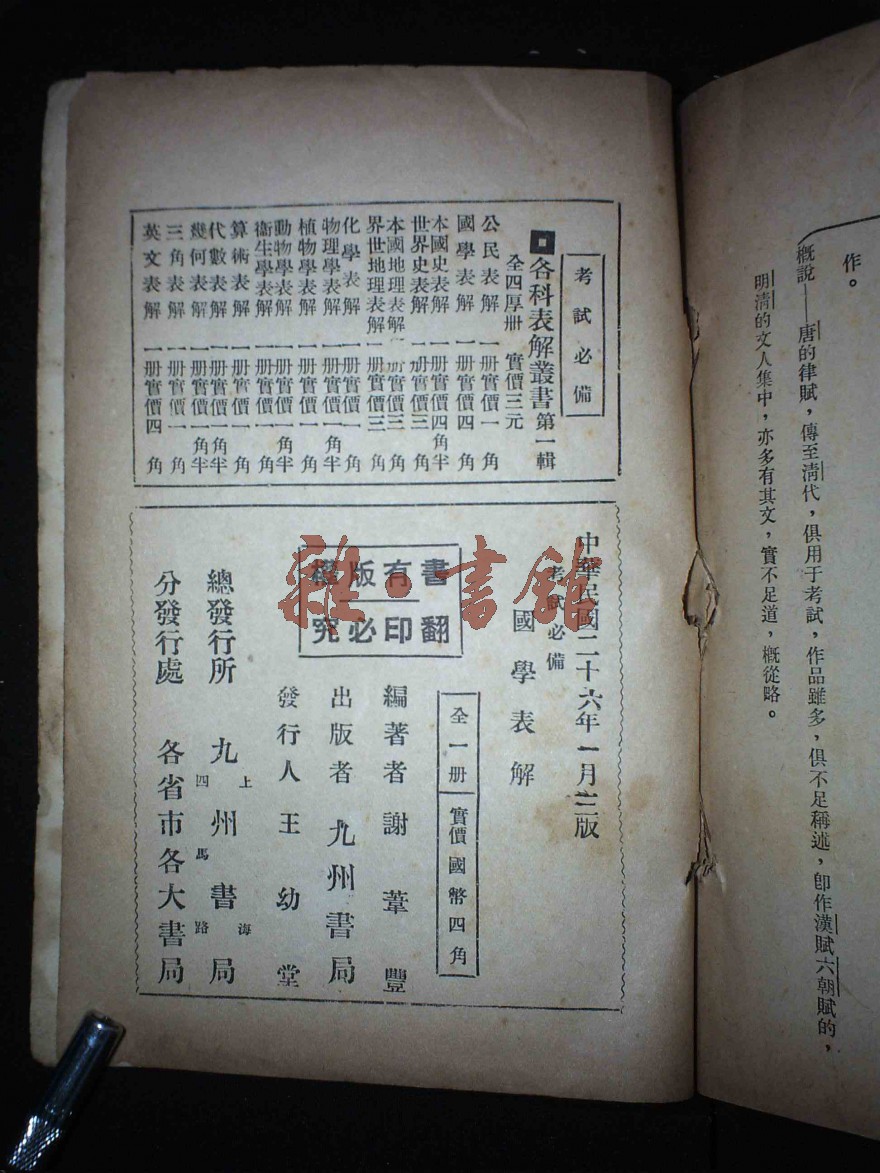 作。
概說——唐的律賦，傳至清代，俱用于考試，作品雖多，俱不足稱述，卽作漢賦六朝賦的，
明清的文人集中，亦多有其文，實不足道，概從略。
考試必備
各科表解叢書第一輯
全四厚册 實價三元
公民表解 一册實價一角
國學表解 一册實價四角
本國史表解 一册實價四角半
世界史表解 一册實價三角
本國地理表解 一册實價三角
界世地理表解 一册實價三角
化學表解 一册實價一角
物理學表解 一册實價一角半
植物學表解 一册實價一角
動物學表解 一册實價一角半
衛生學表解 一册實價一角
算術表解 一册實價一角
代數表解 一册實價一角半
幾何表解 一册實價一角半
三角表解 一册實價一角
英文表解 一册實價四角
中華民國二十六年一月三版
考試必備
國學表解
全一册 實價國幣四角
書有版權
翻印必究
編著者 謝葦豐
出版者 九州書局
發行人 王幼堂
總發行所 九州書局
上海
四馬路
分發行處 各省市各大書局
雜·書館